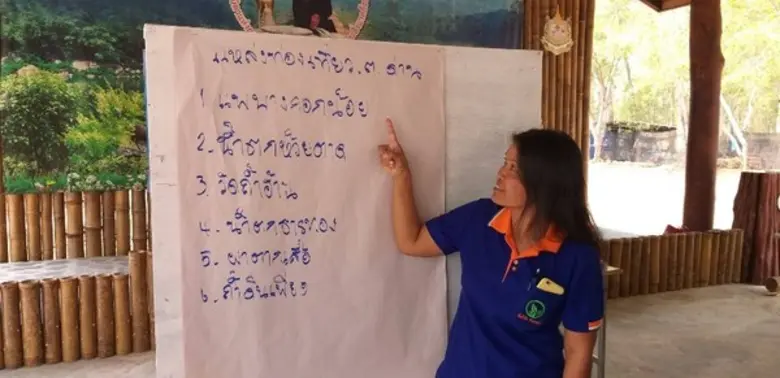 แหล่งท่องเที่ยว. ต.
1 แพบางกอกน้อย
2. น้ำตกห้วยตาด
3.
4. น้ำตกธารทอง
5. ผาตากเสื้อ
6. ถ้ำดินเพียง